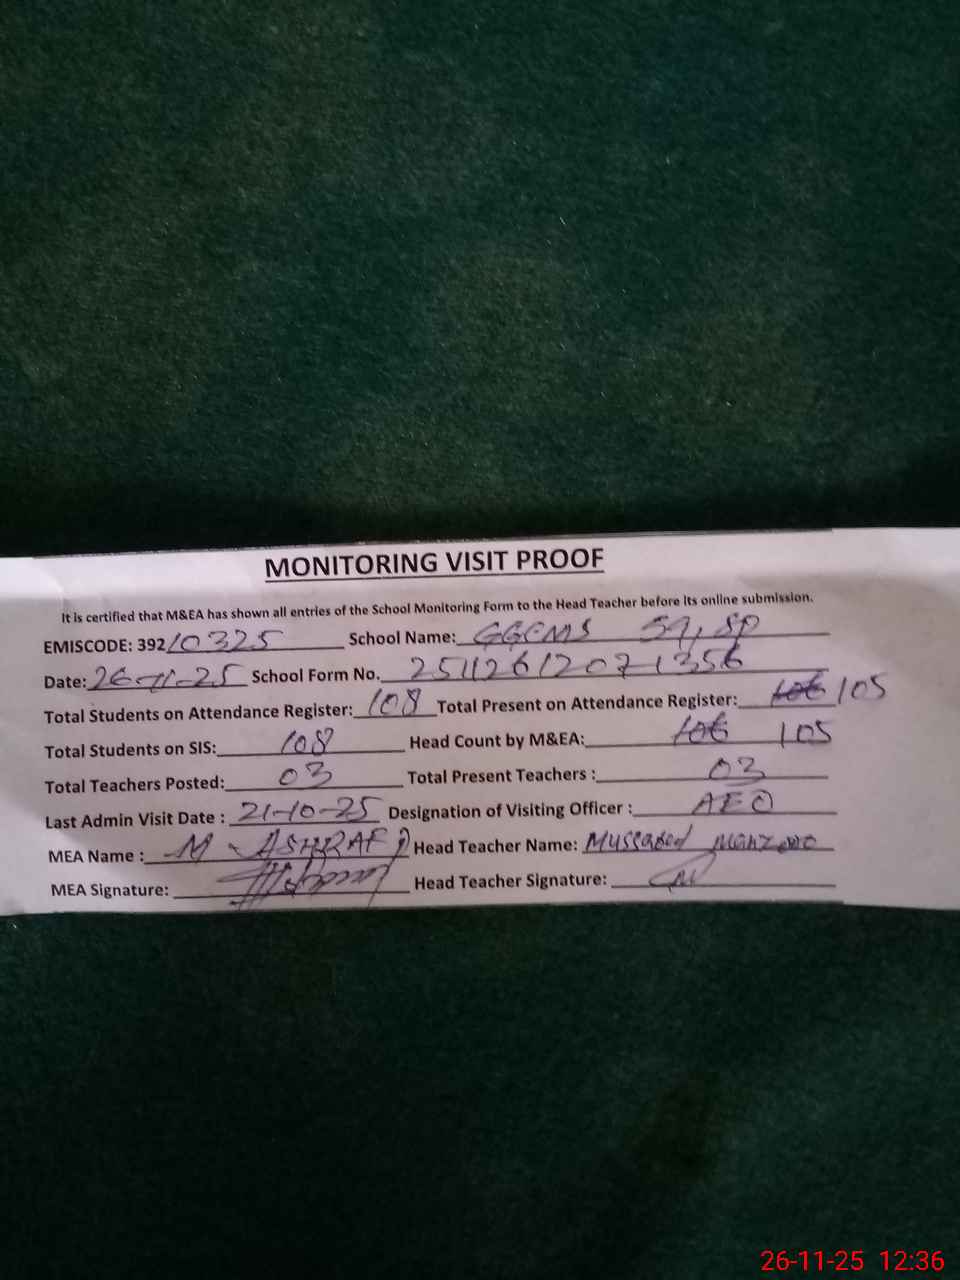 MONITORING VISIT PROOF
It is certified that M&EA has shown all entries of the School Monitoring Form to the Head Teacher before its online submission.
EMISCODE: 39210325 School Name: GGCMS 59, SP
Date: 26-11-25 School Form No. 25112612071356
Total Students on Attendance Register: 108 Total Present on Attendance Register: 106 105
Total Students on SIS: 108 Head Count by M&EA: 106 105
Total Teachers Posted: 03 Total Present Teachers : 03
Last Admin Visit Date : 21-10-25 Designation of Visiting Officer : AEO
MEA Name : M. ASHRAF Head Teacher Name:
MEA Signature: Head Teacher Signature:
26-11-25 12:36